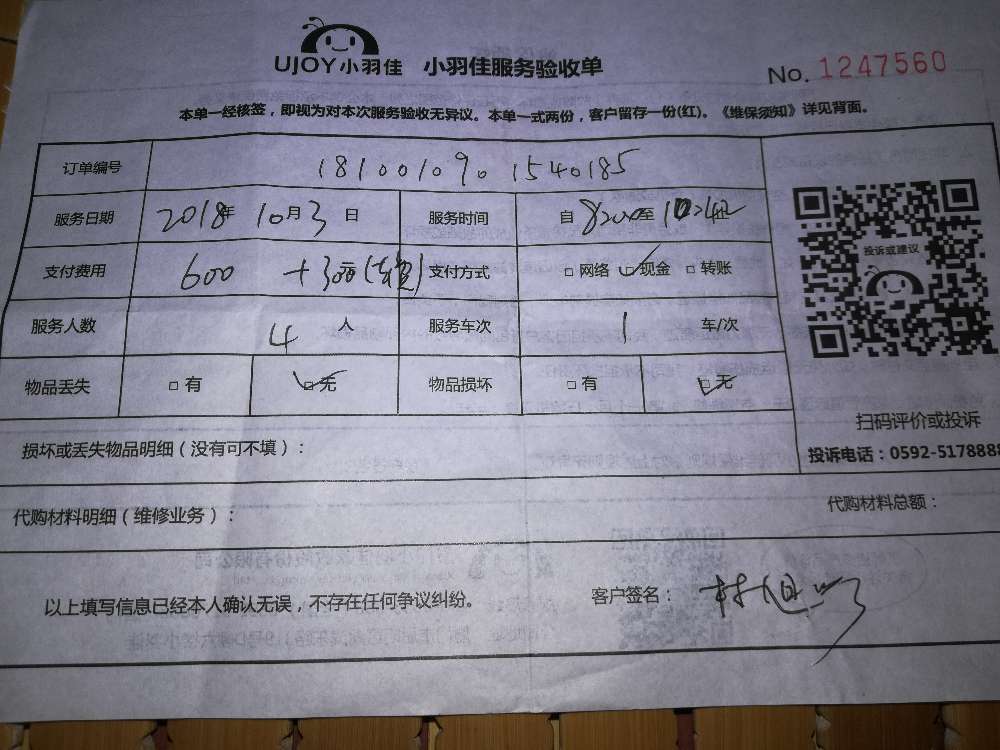 UJOY小羽佳 小羽佳服务验收单
No. 1247560
本单一经核签，即视为对本次服务验收无异议。本单一式两份，客户留存一份(红)。《维保须知》详见背面。
订单编号 181001090 1540185
服务日期 2018年 10月3日 服务时间 自 至
支付费用 600 +300 支付方式 □ 网络 □ 现金 □ 转账
服务人数 4 人 服务车次 1 车/次
物品丢失 □ 有 □ 无 物品损坏 □ 有 □ 无
投诉或建议
扫码评价或投诉
投诉电话：0592-5178888
损坏或丢失物品明细（没有可不填）：
代购材料明细（维修业务）：
代购材料总额：
以上填写信息已经本人确认无误，不存在任何争议纠纷。
客户签名：